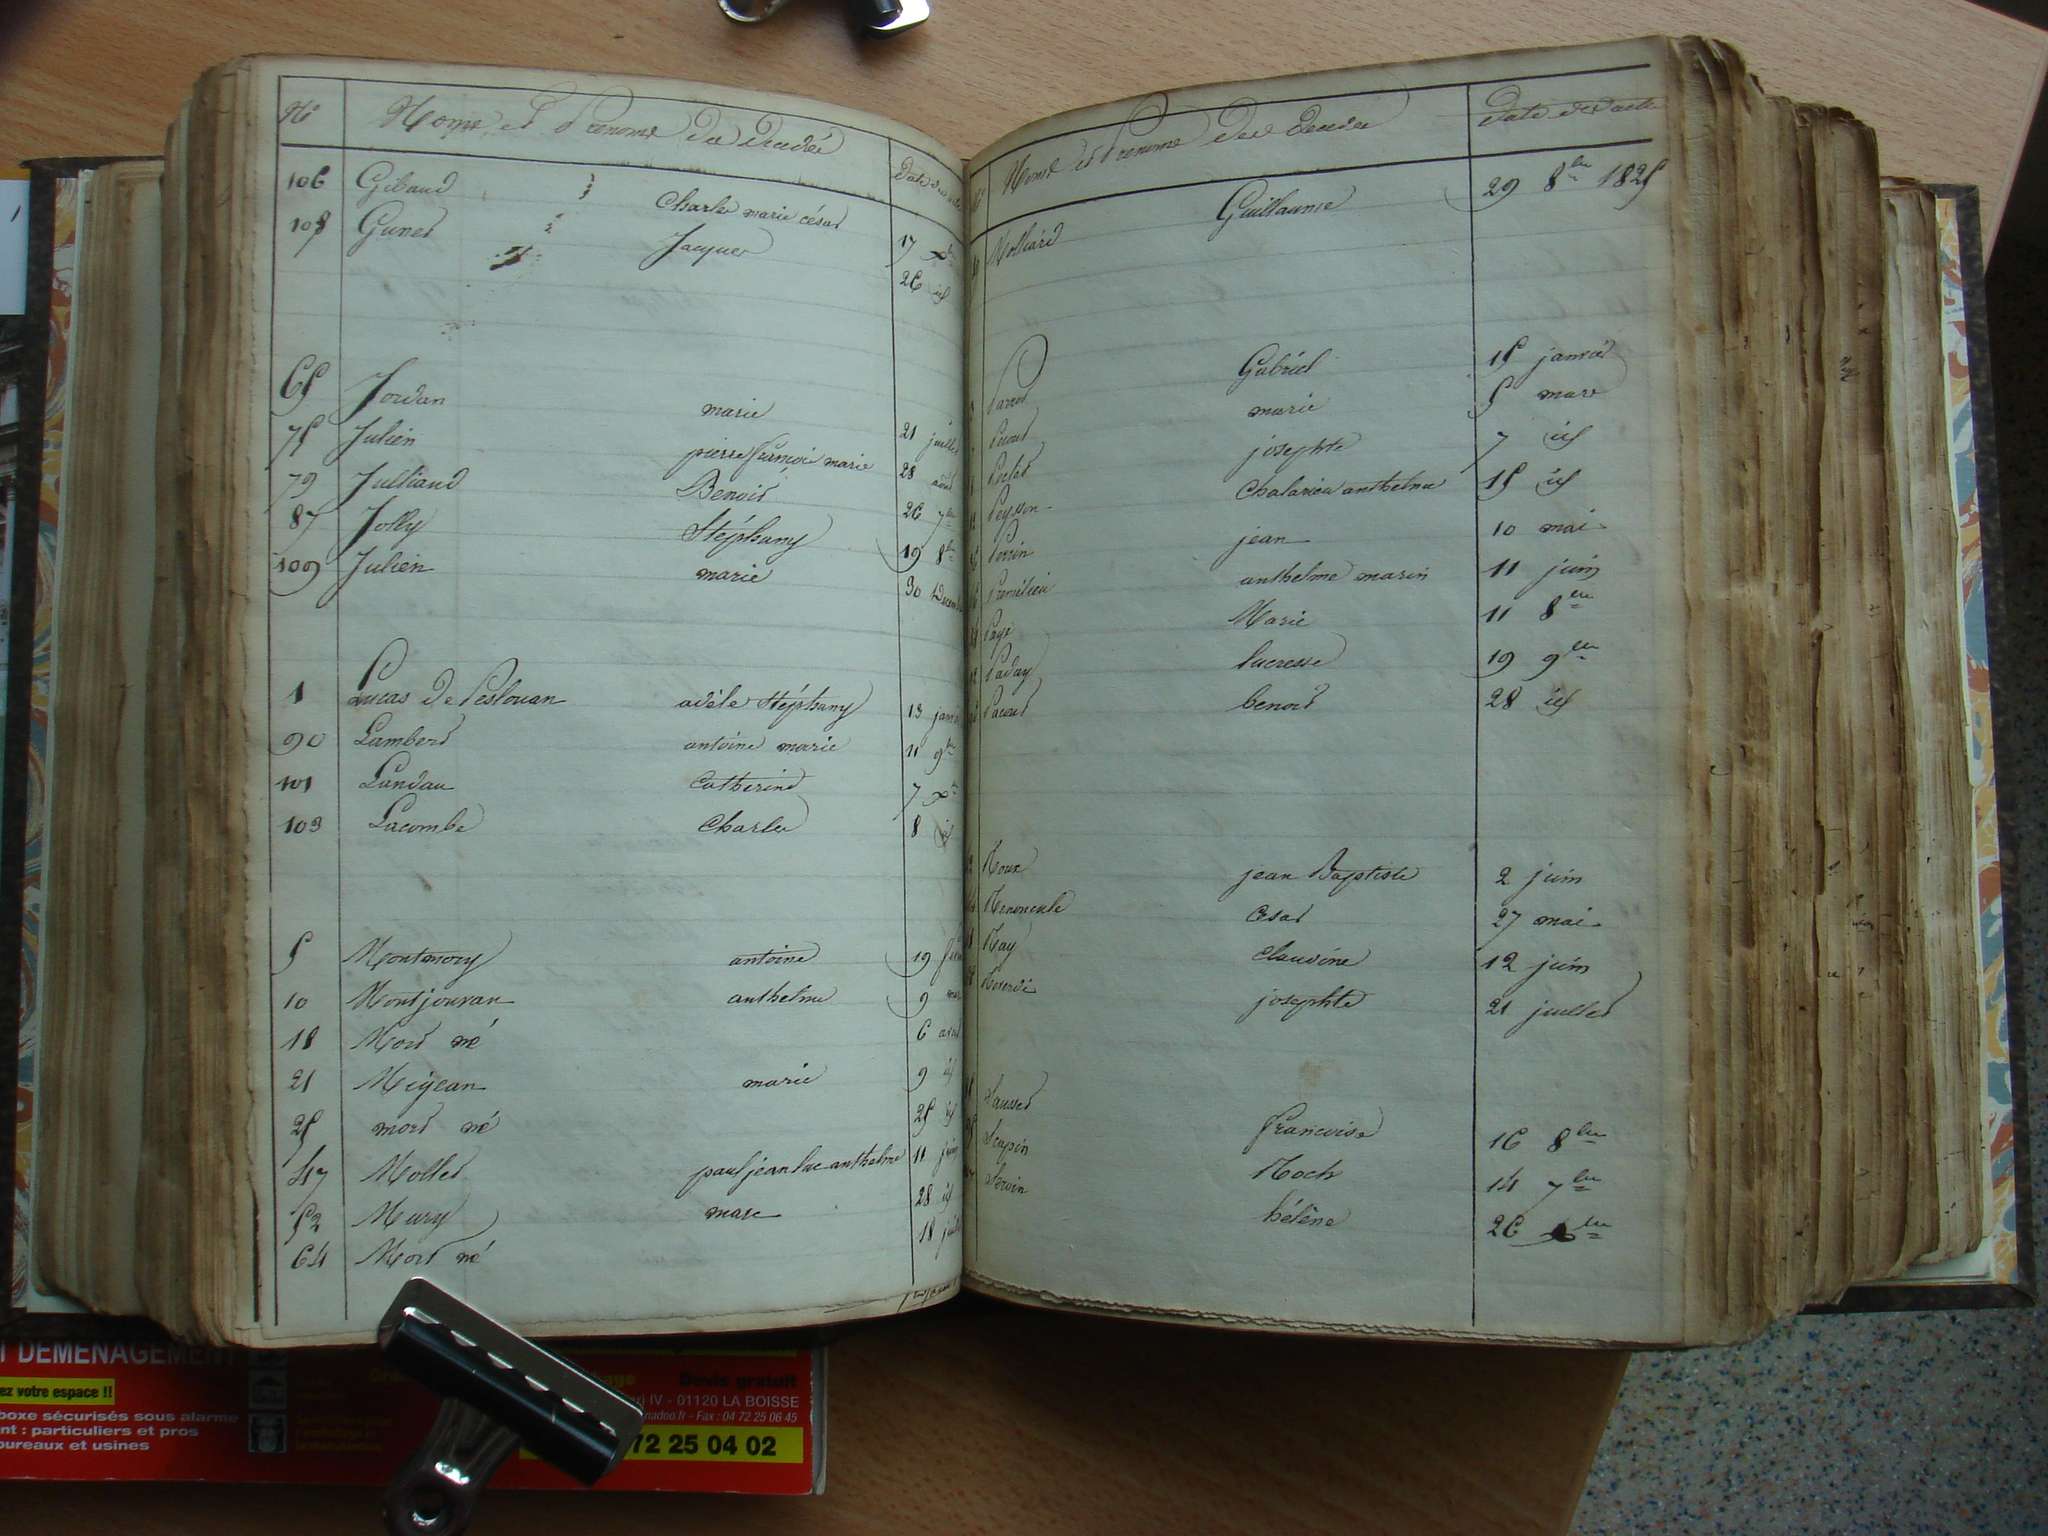 No Noms et Prénoms des décédés Date des actes
106 Gibaud Charles marie césar 17 xbre
108 Gunet Jacques 26 id
65 Jordan marie 21 juillet
75 Julien pierre françois marie 28 août
79 Julliand Benoit 26 7bre
87 Jolly Stéphany 19 8bre
109 Julien marie 30 Décembre
1 Lucas de Peslouan adèle Stéphany 13 janv
90 Lambert antoine marie 11 9bre
101 Landau Catherine 7 xbre
103 Lacombe Charles 8 id
5 Montmory antoine 19
10 Montjouvan anthelme 9 mars
18 Mort né 6 avril
21 Migean marie 9 id
25 mort né 25 id
47 Mollet paul jean luc anthelme 11 juin
52 Mury marc 28 id
64 Mort né 18 juillet
Noms et Prénoms des décédés Date des actes
Molliard Guillaume 29 8bre 1825
Parrot Gabriel 15 janvier
marie 5 mars
josephte 7 id
Peysson anthelme 15 id
Perrin jean 10 mai
Prémilieu anthelme marin 11 juin
Page Marie 11 8bre
Paday lucresse 19 9bre
Pacout benoit 28 id
Roux jean Baptiste 2 juin
Renoncule César 27 mai
Ray Claudine 12 juin
josephte 21 juillet
Sausset francoise 16 8bre
Scapin Roch 14 7bre
Servin hélène 26 bre
DEMENAGEMENT
ez votre espace !!
boxe sécurisés sous alarme
nt : particuliers et pros
bureaux et usines
Devis gratuit
ri IV - 01120 LA BOISSE
nadoo.fr - Fax : 04 72 25 06 45
72 25 04 02